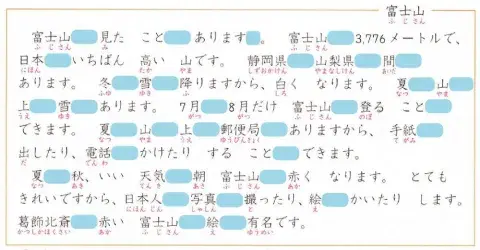 富士山
ふじさん
富士山 見た こと あります 。 富士山 3,776メートルで、
ふじさん み ふじさん
日本 いちばん 高い 山です。 静岡県 山梨県 間
にほん たか やま しずおかけん やまなしけん あいだ
あります。 冬 雪 降りますから、白く なります。 夏 山
ふゆ ゆき ふ しろ なつ やま
上 雪 あります。 7月 8月だけ 富士山 登る こと
うえ ゆき がつ がつ ふじさん のぼ
できます。 夏 山 上 郵便局 ありますから、 手紙
なつ やま うえ ゆうびんきょく てがみ
出したり、電話 かけたり する こと できます。
だ でんわ
夏 秋、いい 天気 朝 富士山 赤く なります。 とても
なつ あき てんき あさ ふじさん あか
きれいですから、日本人 写真 撮ったり、絵 かいたり します。
にほんじん しゃしん と え
葛飾北斎 赤い 富士山 絵 有名です。
かつしかほくさい あか ふじさん え ゆうめい